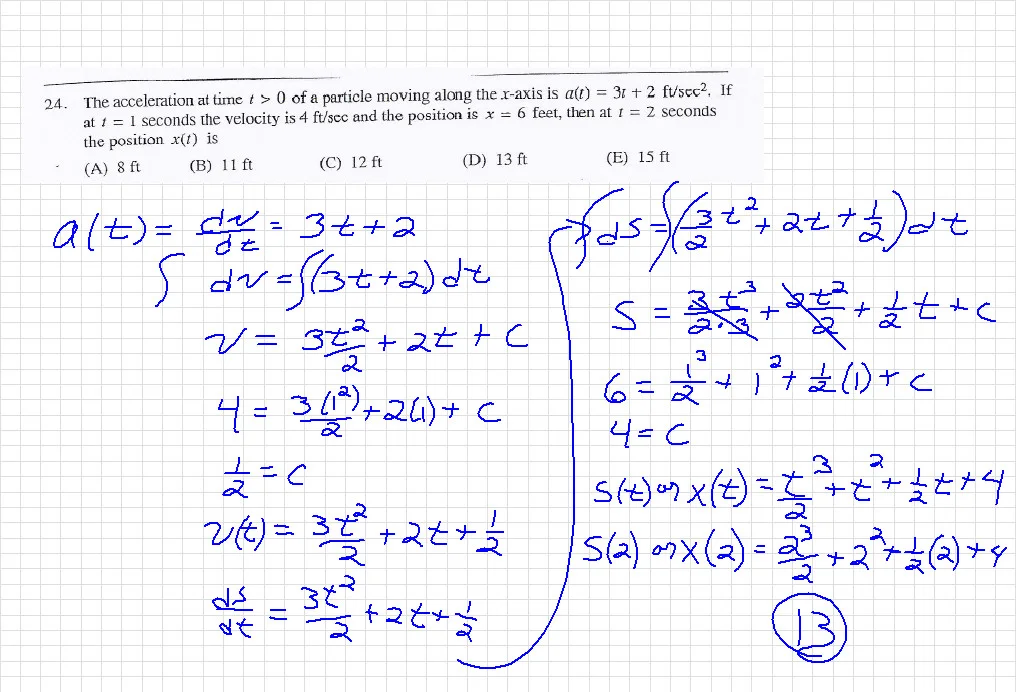 24. The acceleration at time t > 0 of a particle moving along the x-axis is a(t) = 3t + 2 ft/sec². If
at t = 1 seconds the velocity is 4 ft/sec and the position is x = 6 feet, then at t = 2 seconds
the position x(t) is
(A) 8 ft (B) 11 ft (C) 12 ft (D) 13 ft (E) 15 ft
a(t) = dv/dt = 3t + 2
∫ dv = ∫(3t + 2) dt
v = 3t²/2 + 2t + C
4 = 3(1²)/2 + 2(1) + C
1/2 = C
v(t) = 3t²/2 + 2t + 1/2
ds/dt = 3t²/2 + 2t + 1/2
∫ds = ∫(3/2 t² + 2t + 1/2) dt
S = 3t³/2·3 + 2t²/2 + 1/2 t + C
6 = 1³/2 + 1² + 1/2 (1) + C
4 = C
S(t) or x(t) = t³/2 + t² + 1/2 t + 4
S(2) or x(2) = 2³/2 + 2² + 1/2 (2) + 4
13